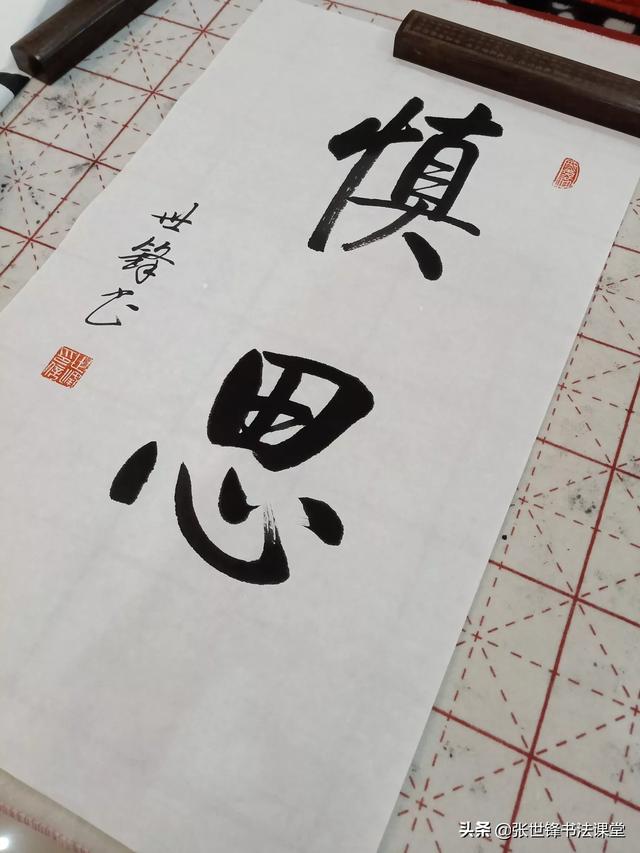 慎思
世锋书
头条 @张世锋书法课堂